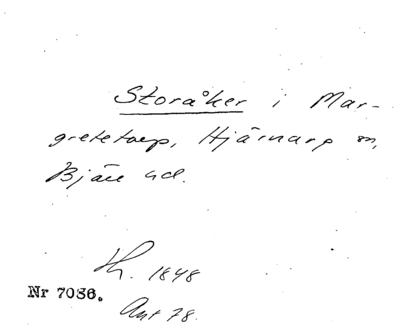 Storåker i Mar-
gretetorp, Hjärnarp sn,
Bjäre hd.
Th. 1848
Nr 7086.
Ant 78.